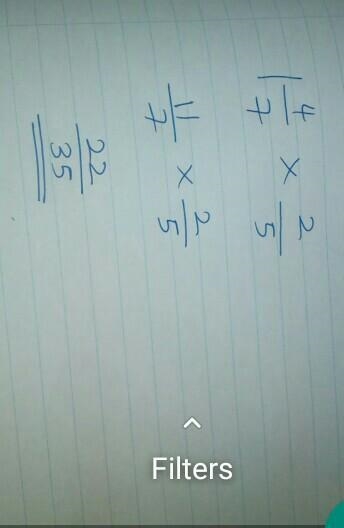 1 4/7 × 2/5
11/7 × 2/5
22/35
Filters